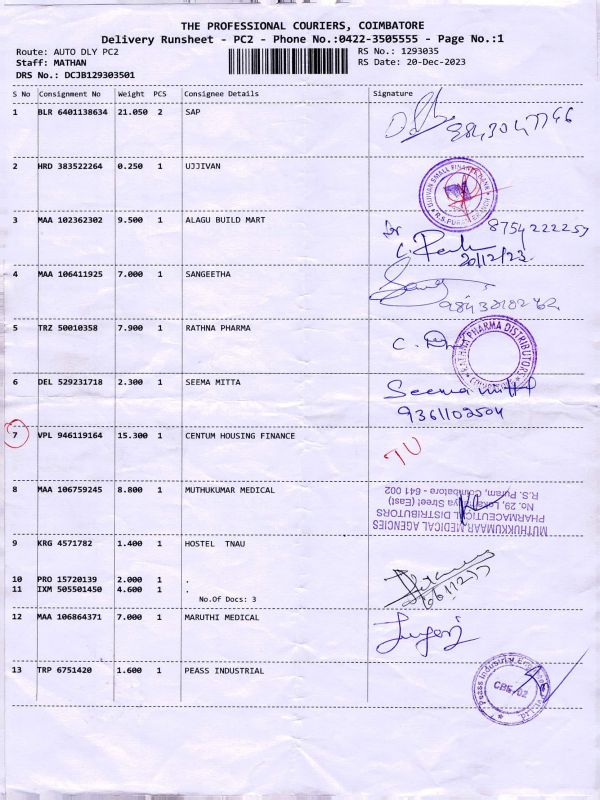 THE PROFESSIONAL COURIERS, COIMBATORE
Delivery Runsheet - PC2 - Phone No.:0422-3505555 - Page No.:1
Route: AUTO DLY PC2 RS No.: 1293035
Staff: MATHAN RS Date: 20-Dec-2023
DRS No.: DCJB129303501
S No Consignment No Weight PCS Consignee Details Signature
1 BLR 6401138634 21.050 2 SAP
2 HRD 383522264 0.250 1 UJJIVAN
UJJIVAN SMALL FINANCE BANK
R.S. PURAM BRANCH
3 MAA 102362302 9.500 1 ALAGU BUILD MART
8754222257
20/12/23
4 MAA 106411925 7.000 1 SANGEETHA
5 TRZ 50010358 7.900 1 RATHNA PHARMA
RATHNA PHARMA DISTRIBUTORS
6 DEL 529231718 2.300 1 SEEMA MITTA
Seema mittal
9361102504
7 VPL 946119164 15.300 1 CENTUM HOUSING FINANCE
TU
8 MAA 106759245 8.800 1 MUTHUKUMAR MEDICAL
MUTHUKKUMAAR MEDICAL AGENCIES
PHARMACEUTICAL DISTRIBUTORS
No. 29, Street (East)
R.S. Puram, Coimbatore - 641 002
9 KRG 4571782 1.400 1 HOSTEL TNAU
10 PRO 15720139 2.000 1 .
11 IXM 505501450 4.600 1 .
No.Of Docs: 3
12 MAA 106864371 7.000 1 MARUTHI MEDICAL
13 TRP 6751420 1.600 1 PEASS INDUSTRIAL
Peass Industrial
CBE/02